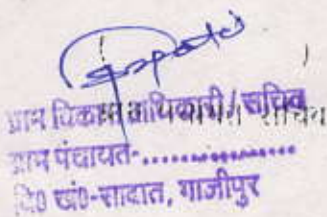 ग्राम विकास अधिकारी / सचिव
ग्राम पंचायत-..............
वि० खं०-सादात, गाजीपुर